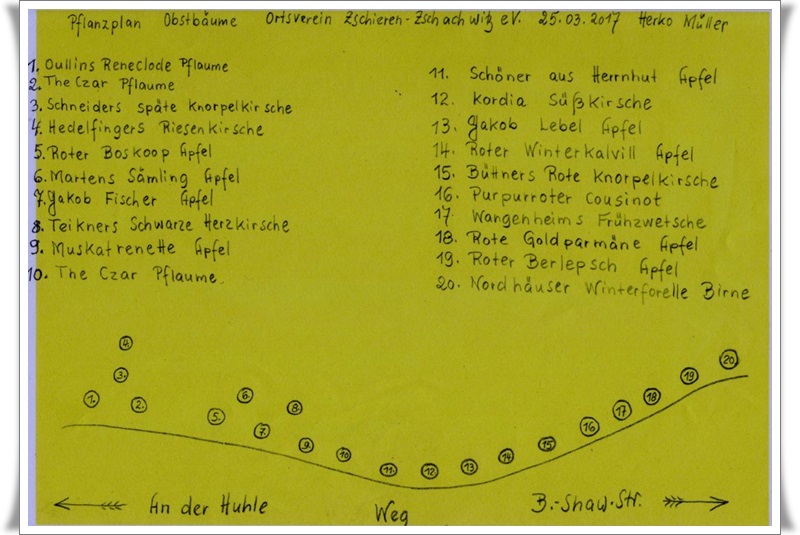 Pflanzplan Obstbäume Ortsverein Zschieren-Zschachwitz eV. 25.03.2017 Herko Müller
1. Oullins Reneclode Pflaume
2. The Czar Pflaume
3. Schneiders späte Knorpelkirsche
4. Hedelfingers Riesenkirsche
5. Roter Boskoop Apfel
6. Martens Sämling Apfel
7. Jakob Fischer Apfel
8. Teikners Schwarze Herzkirsche
9. Muskatrenette Apfel
10. The Czar Pflaume.
11. Schöner aus Herrnhut Apfel
12. Kordia Süßkirsche
13. Jakob Lebel Apfel
14. Roter Winterkalvill Apfel
15. Büttners Rote Knorpelkirsche
16. Purpurroter Cousinot
17. Wangenheims Frühzwetsche
18. Rote Goldparmäne Apfel
19. Roter Berlepsch Apfel
20. Nordhäuser Winterforelle Birne
4.
3.
1.
2.
5.
6.
7.
8.
9.
10
11.
12.
13
14
15
16
17
18
19
20
An der Huhle
Weg
B.-Shaw-Str.